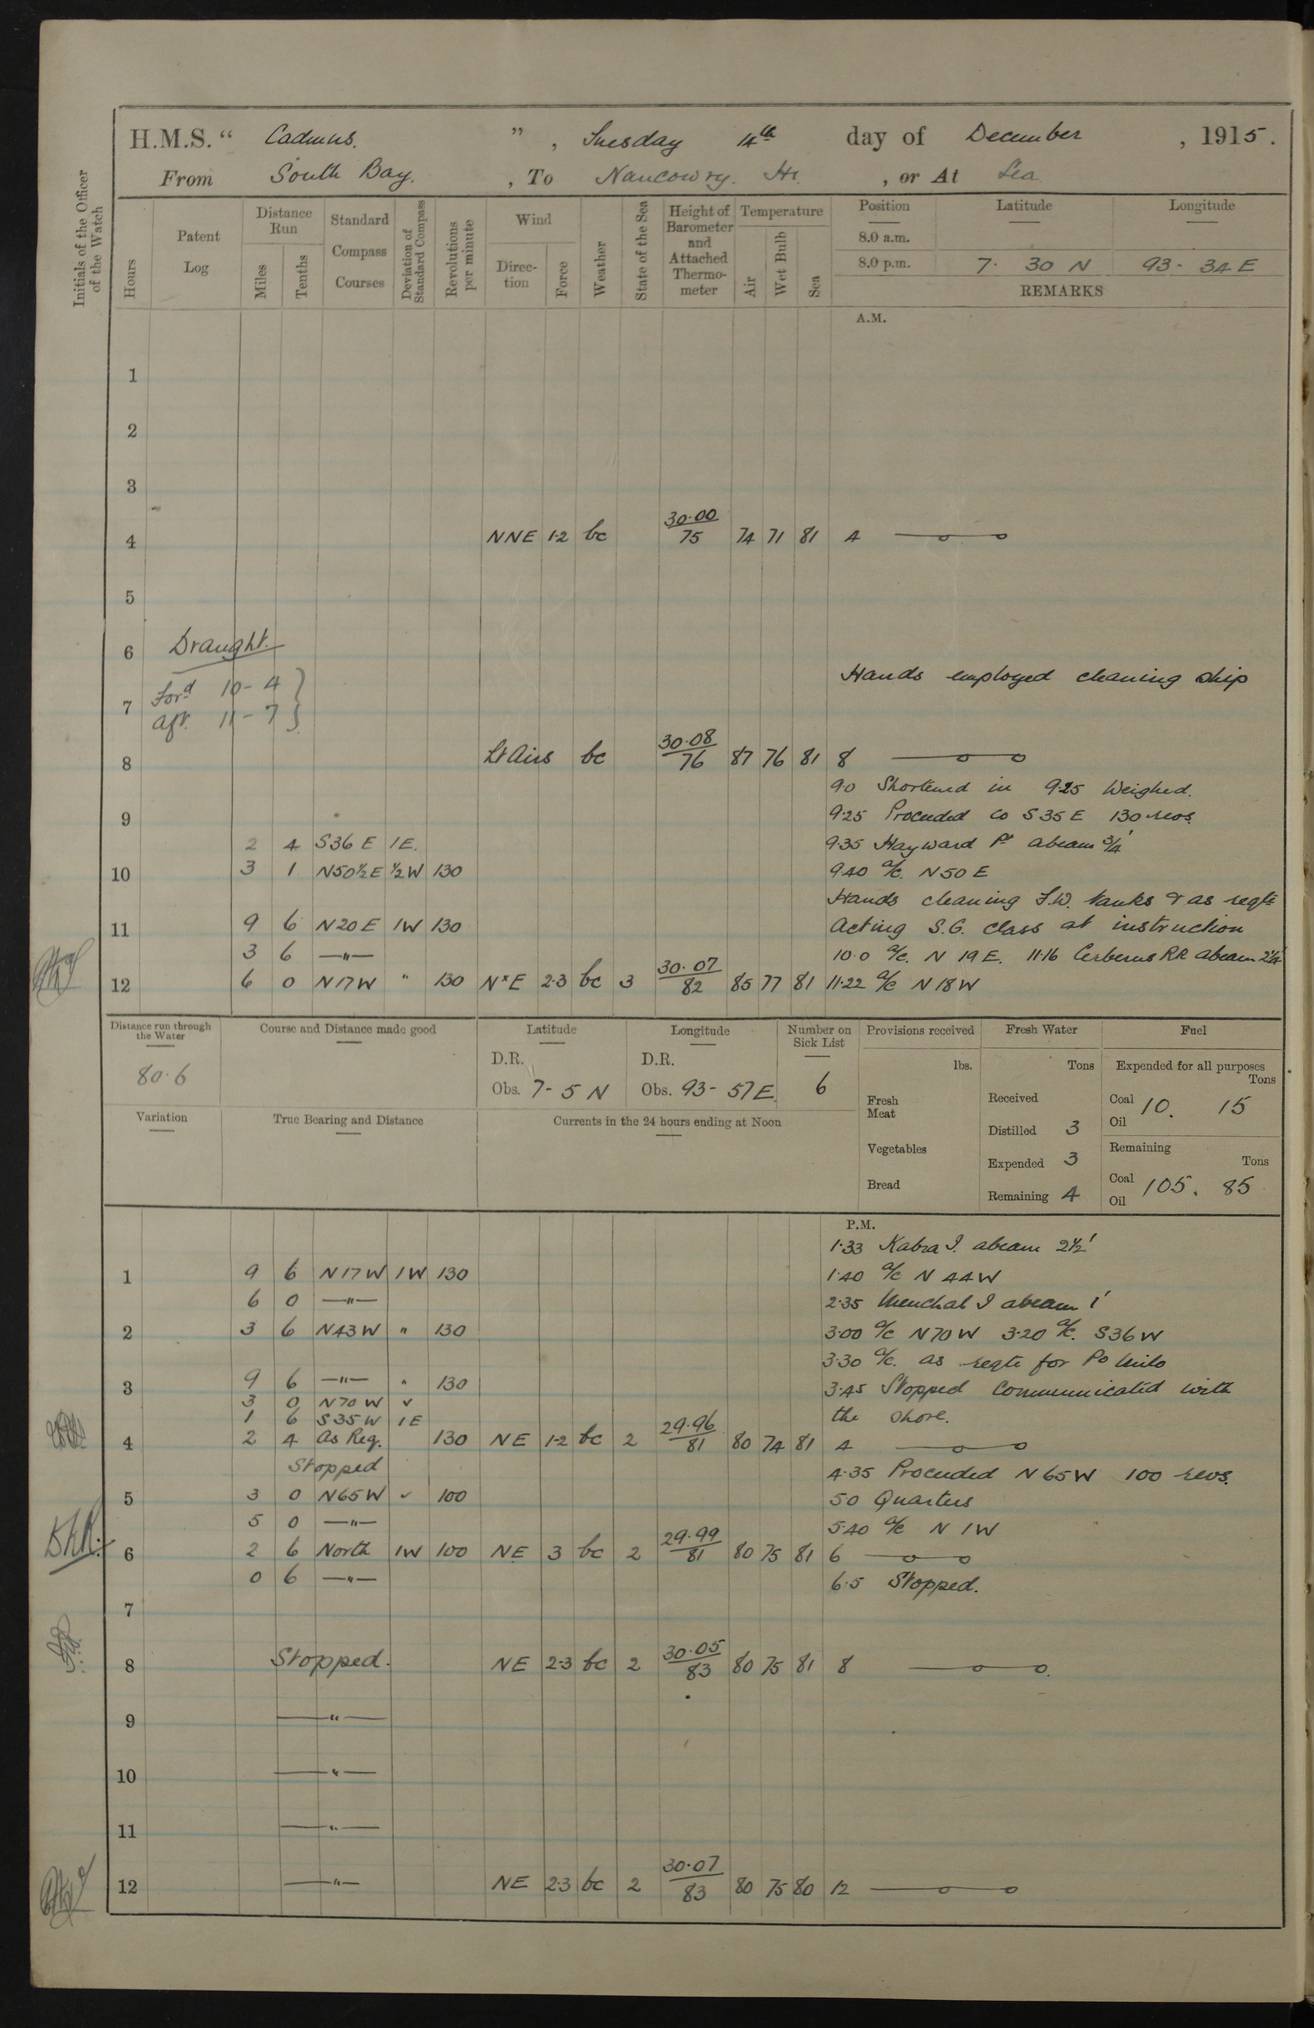 H.M.S. “ Cadmus. ” , Tuesday 14th day of December , 1915.
From South Bay. , To Nancowry. Hr , or At Sea
Initials of the Officer of the Watch
Hours
Patent Log
Distance Run
Miles
Tenths
Standard Compass Courses
Deviation of Standard Compass
Revolutions per minute
Wind
Direc-tion
Force
Weather
State of the Sea
Height of Barometer and Attached Thermo-meter
Temperature
Air
Wet Bulb
Sea
Position Latitude Longitude
8.0 a.m.
8.0 p.m. 7· 30 N 93- 34 E
REMARKS
A.M.
1
2
3
4 NNE 1·2 bc 30·00/75 74 71 81 4
5
6 Draught.
Hands employed cleaning ship
Ford 10-4
7
Aft. 11-7
8 Lt Airs bc 30·08/76 87 76 81 8
9·0 Shortened in 9·25 Weighed.
9
9·25 Proceeded Co S35E 130 revs.
2 4 S36E 1E. 9·35 Hayward Pt abeam 3/4'
10 3 1 N50½E ½W 130 9·40 a/c. N50E
Hands cleaning F.W. tanks & as reqte
11 9 6 N20E 1W 130 Acting S.G. class at instruction
3 6 —"— 10·0 a/c. N 19E. 11·16 Cerberus RR abeam 2¼'
12 6 0 N17W " 130 NxE 2·3 bc 3 30·07/82 85 77 81 11·22 a/c N18W
Distance run through the Water
80·6
Course and Distance made good
Latitude
D.R.
Obs. 7- 5 N
Longitude
D.R.
Obs. 93- 57 E.
Number on Sick List
6
Provisions received
lbs.
Fresh Meat
Vegetables
Bread
Fresh Water
Tons
Received
Distilled 3
Expended 3
Remaining 4
Fuel
Expended for all purposes
Tons
Coal 10. 15
Oil
Remaining
Tons
Coal 105. 85
Oil
Variation
True Bearing and Distance
Currents in the 24 hours ending at Noon
P.M.
1·33 Kabra I. abeam 2½'
1 9 6 N17W 1W 130 1·40 a/c N 44W
6 0 —"— 2·35 Menchal I abeam 1'
2 3 6 N43W " 130 3·00 a/c N70W 3·20 a/c. S36W
3·30 a/c. as reqte for Po Milo
3 9 6 —"— " 130 3·45 Stopped Communicated with
3 0 N70W ✓
1 6 S35W 1E the shore.
4 2 4 As Req. 130 NE 1·2 bc 2 29·96/81 80 74 81 4
Stopped 4·35 Proceeded N65W 100 revs.
5 3 0 N65W ✓ 100 5·0 Quarters
5 0 —"— 5·40 a/c N 1W
6 2 6 North 1W 100 NE 3 bc 2 29·99/81 80 75 81 6
0 6 —"— 6·5 Stopped.
7
8 Stopped. NE 2·3 bc 2 30·05/83 80 75 81 8
9 —"—
10 —"—
11 —"—
12 —"— NE 2·3 bc 2 30·07/83 80 75 80 12